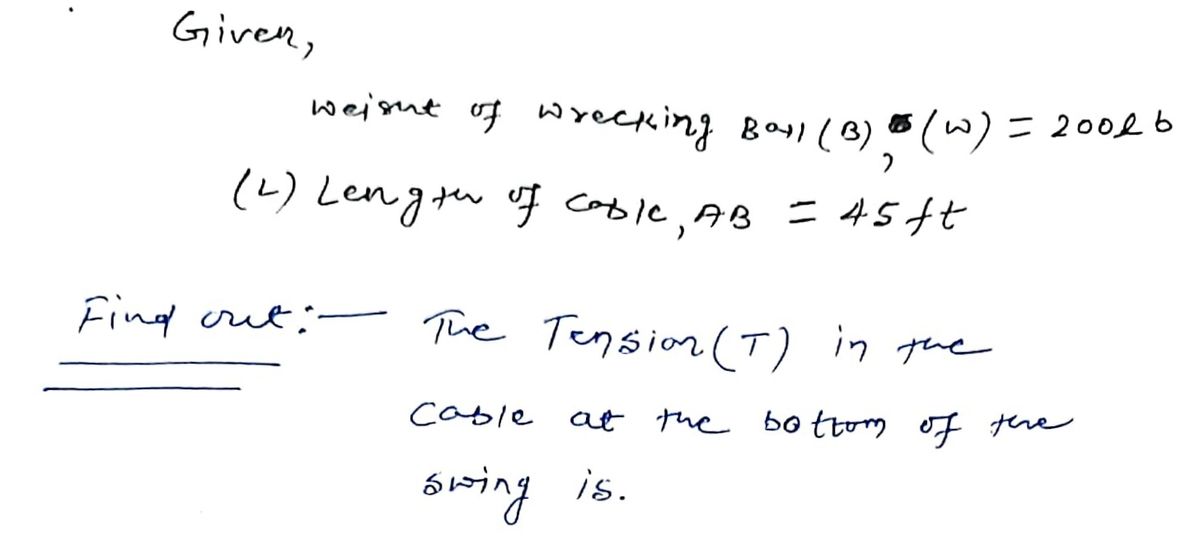 Given,
weight of wrecking Ball (B), (W) = 200lb
(L) Length of cable, AB = 45ft
Find out:— The Tension (T) in the
cable at the bottom of the
swing is.